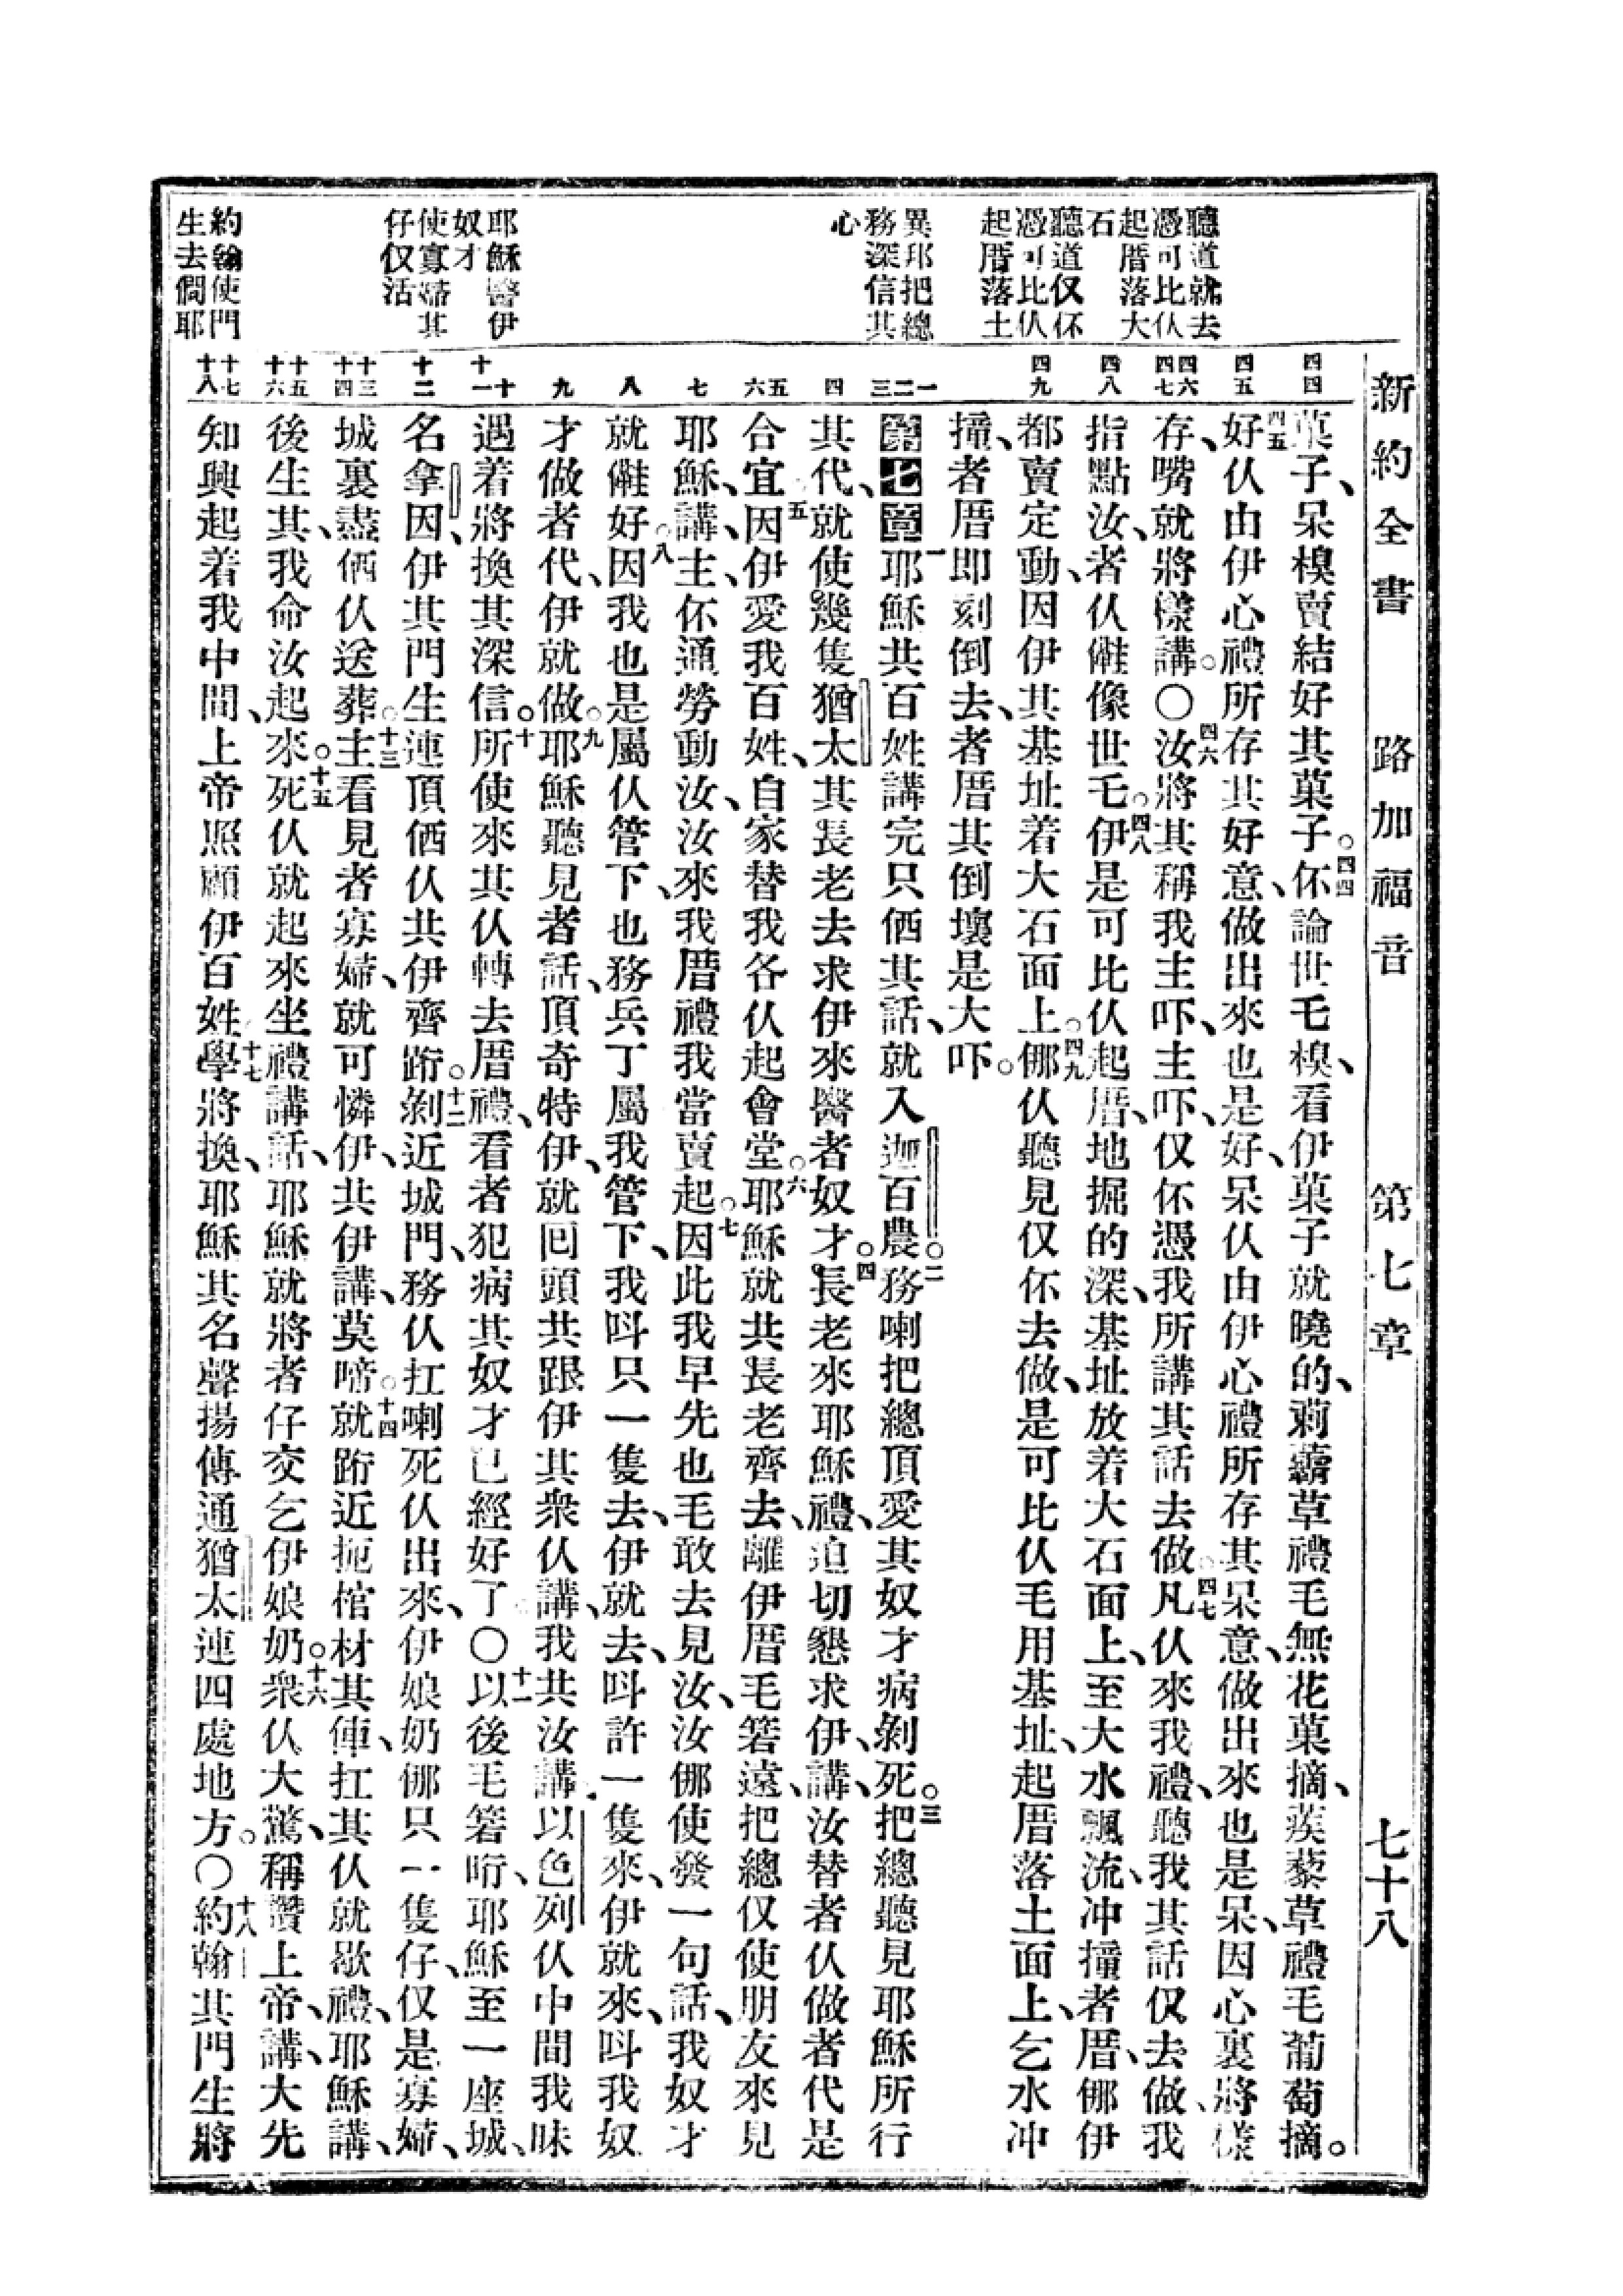 新約全書 路加福音 第七章 七十八
聽道就去
憑可比仈
起厝落大
石
聽道仅伓
憑可比仈
起厝落土
異邦把總
務深信其
心
耶穌醫伊
奴才
使寡婦其
仔仅活
約翰使門
生去問耶
四四
四五
四六
四七
四八
四九
一
二
三
四
五
六
七
八
九
十
十一
十二
十三
十四
十五
十六
十七
十八
菓子、呆模賣結好其菓子。四四伓論世毛模、看伊菓子就曉的、莿蘮草禮毛無花菓摘、蒺藜草禮毛葡萄摘。
四五好仈由伊心禮所存其好意、做出來也是好、呆仈由伊心禮所存其呆意、做出來也是呆、因心裏將樣
存、嘴就將樣講。〇四六汝將其稱我主吓、主吓、仅伓憑我所講其話去做。四七凡仈來我禮、聽我其話仅去做、我
指點汝、者仈儺像世乇。四八伊是可比仈起厝、地掘的深、基址放着大石面上、至大水飄流、冲撞者厝、㑚伊
都賣定動、因伊其基址着大石面上。四九㑚仈聽見仅伓去做、是可比仈毛用基址、起厝落土面上、乞水冲
撞、者厝即刻倒去、者厝其倒壞是大吓。
第七章一耶穌共百姓講完只仾其話、就入迦百農。二務喇把總頂愛其奴才病剝死。三把總聽見耶穌所行
其代、就使幾隻猶太其長老去求伊來醫者奴才。四長老來耶穌禮、迫切懇求伊、講、汝替者仈做者代是
合宜、五因伊愛我百姓、自家替我各仈起會堂。六耶穌就共長老齊去、離伊厝毛箬遠、把總仅使朋友來見
耶穌、講、主、伓通勞動汝、汝來我厝禮我當賣起。七因此我早先也毛敢去見汝、汝㑚使發一句話、我奴才
就儺好。八因我也是屬仈管下、也務兵丁屬我管下、我呌只一隻去、伊就去、呌許一隻來、伊就來、呌我奴
才做者代、伊就做。九耶穌聽見者話、頂奇特伊、就囘頭共跟伊其衆仈講、我共汝講、以色列仈中間我昧
遇着將換其深信。十所使來其仈轉去厝禮、看者犯病其奴才已經好了。〇十一以後毛箬𣍐、耶穌至一座城、
名拿因、伊其門生連頂仾仈共伊齊跲。十二剝近城門、務仈扛喇死仈出來、伊娘奶㑚只一隻仔、仅是寡婦、
城裏盡仾仈送葬。十三主看見者寡婦、就可憐伊、共伊講、莫啼。十四就跲近扼棺材其俥、扛其仈就歇禮、耶穌講、
後生其、我命汝起來。十五死仈就起來坐禮講話、耶穌就將者仔交乞伊娘奶。十六衆仈大驚、稱讚上帝、講、大先
知興起着我中間、上帝照顧伊百姓、十七學將換、耶穌其名聲揚傳通猶太連四處地方。〇十八約翰其門生將